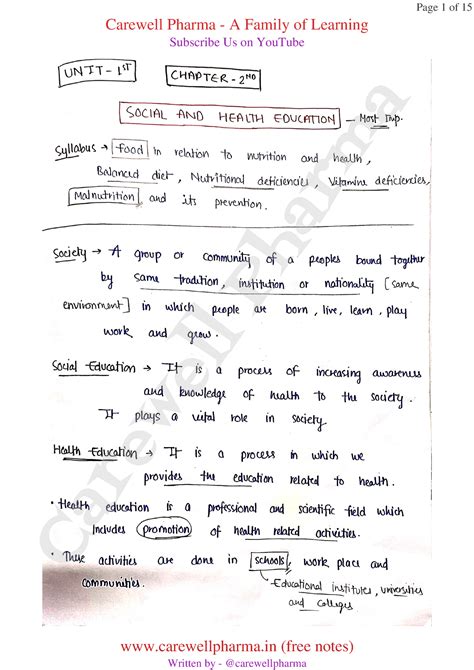 Page 1 of 15
Carewell Pharma - A Family of Learning
Subscribe Us on YouTube
UNIT - 1ST
CHAPTER - 2ND
SOCIAL AND HEALTH EDUCATION - Most Imp.
Syllabus → food in relation to nutrition and health,
Balanced diet, Nutritional deficiencies, Vitamine deficiencies,
Malnutrition and its prevention.
Society → A group or community of a peoples bound together
by same tradition, institution or nationality [same
environment] in which people are born, live, learn, play
work and grow.
Social Education → It is a process of increasing awareness
and knowledge of health to the society.
It plays a vital role in society.
Health Education → It is a process in which we
provides the education related to health.
• Health education is a professional and scientific field which
includes promotion of health related activities.
• These activities are done in schools, work place and
communities.
→ Educational institutes, universities
and colleges
Carewell Pharma
www.carewellpharma.in (free notes)
Written by - @carewellpharma